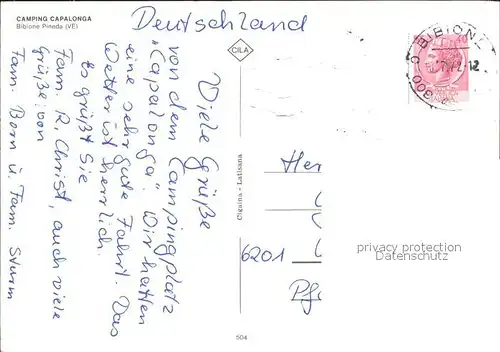 CAMPING CAPALONGA
Bibione Pineda (VE)
Deutschland
Viele Grüße
von dem Campingplatz
"Capalonga". Wir hatten
eine sehr gute Fahrt. Das
Wetter ist herrlich.
Es grüßt Sie
Fam. R. Christ, auch viele
Grüße von
Fam. Born u. Fam. Sturm
CILA
Cigaina - Latisana
504
BIBIONE
Her
6201
Pf
privacy protection
Datenschutz